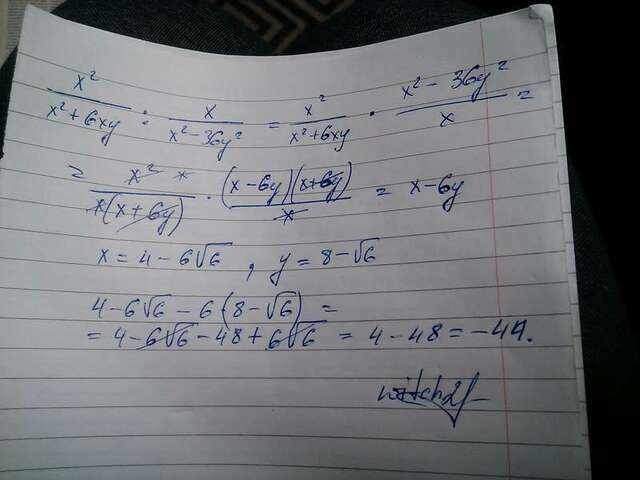 x²/(x²+6xy) : x/(x²-36y²) = x²/(x²+6xy) · (x²-36y²)/x =
= x²/(x(x+6y)) · (x-6y)(x+6y)/x = x-6y
x = 4-6√6 , y = 8-√6
4-6√6-6(8-√6) =
= 4-6√6-48+6√6 = 4-48 = -44.